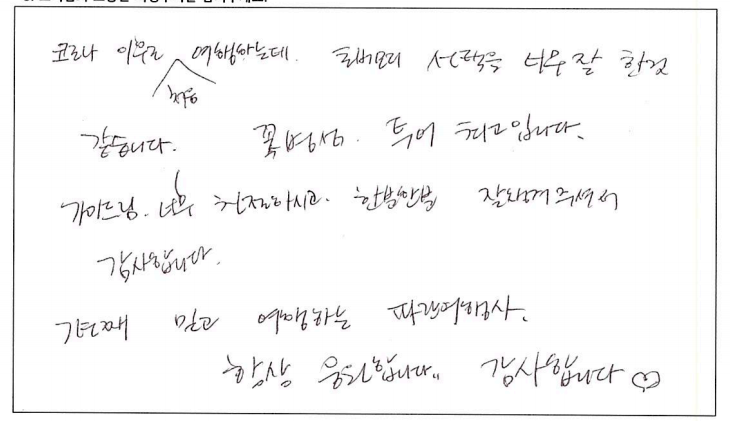 코로나 이후로 처음 여행하는데. 트버모리 선택을 너무 잘 한것
같습니다. 꽃병섬. 투어 최고입니다.
가이드님. 너무 친절하시고. 한분한분 잘챙겨주셔서
감사합니다.
7년째 믿고 여행하는 파란여행사.
항상 응원합니다.. 감사합니다 ♡